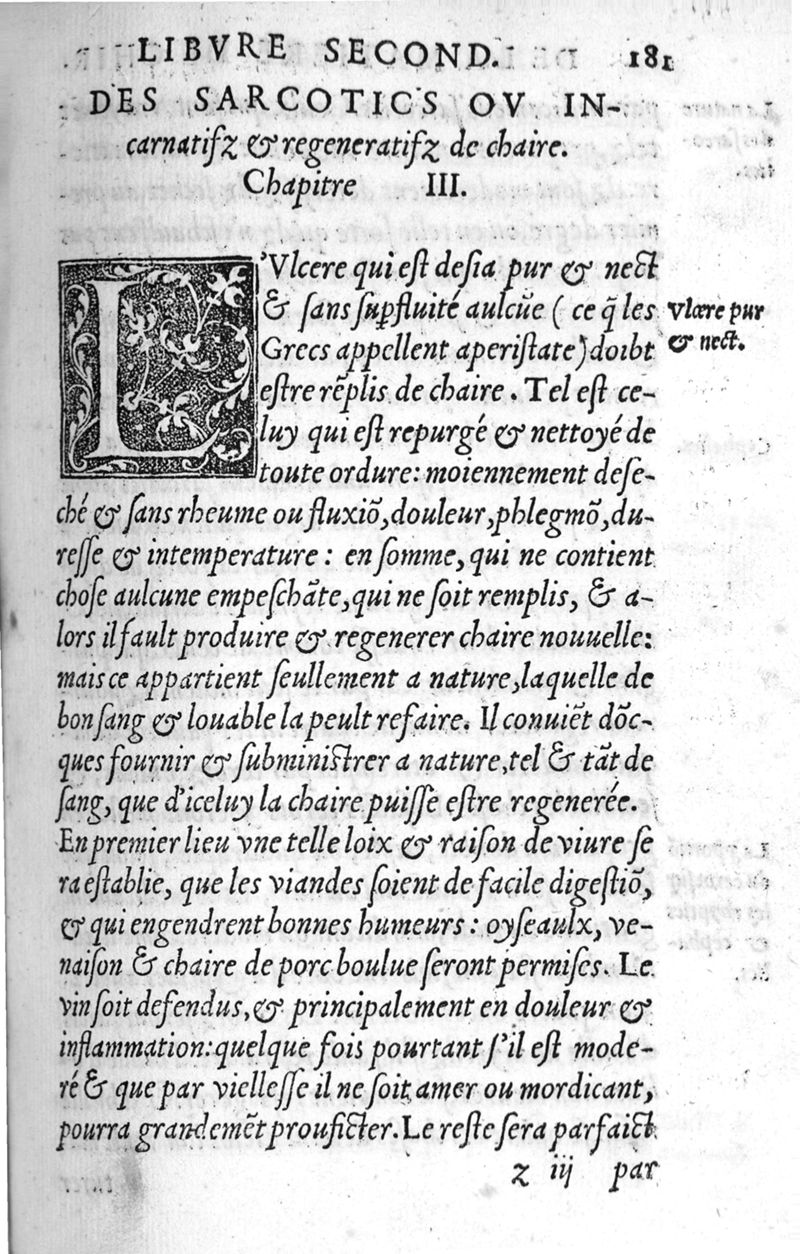 LIBVRE SECOND. 181
DES SARCOTICS OV IN-
carnatifz & regeneratifz de chaire.
Chapitre III.
L'Vlcere qui eſt deſia pur & nect
& ſans ſupfluité aulcũe ( ce q̃ les
Grecs appellent aperiſtate) doibt
eſtre rẽplis de chaire. Tel eſt ce-
luy qui eſt repurgé & nettoyé de
toute ordure: moiennement deſe-
ché & ſans rheume ou fluxiõ, douleur, phlegmõ, du-
reſſe & intemperature : en ſomme, qui ne contient
choſe aulcune empeſchãte, qui ne ſoit remplis, & a-
lors il fault produire & regenerer chaire nouuelle:
mais ce appartient ſeullement a nature, laquelle de
bon ſang & louable la peult refaire. Il conuiẽt dõc-
ques fournir & ſubminiſtrer a nature, tel & tãt de
ſang, que d'iceluy la chaire puiſſe eſtre regenerée.
En premier lieu vne telle loix & raiſon de viure ſe
ra eſtablie, que les viandes ſoient de facile digeſtiõ,
& qui engendrent bonnes humeurs : oyſeaulx, ve-
naiſon & chaire de porc boulue ſeront permiſes. Le
vin ſoit defendus, & principalement en douleur &
inflammation: quelque fois pourtant ſ'il eſt mode-
ré & que par vielleſſe il ne ſoit amer ou mordicant,
pourra grandemẽt proufficter. Le reſte ſera parfaict
z iij par
Vlcere pur
& nect.